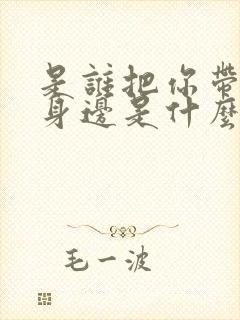 是誰把你帶
身邊是什麼
毛一波